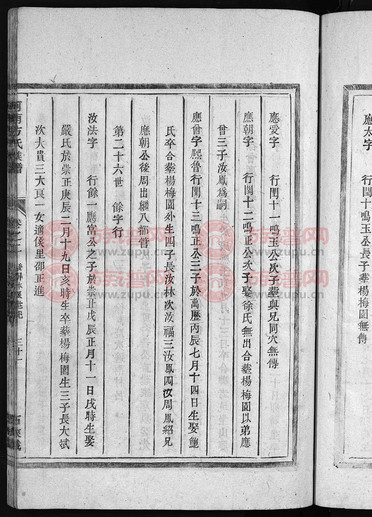 應太字
行閏十　鳴玉公長子葬楊梅
園無傳
應愛字　行閏十一鳴玉公次子葬與兄同穴無傳
應朝字　行閏十二鳴正公次子娶徐氏無出合葬楊梅園以弟應
曾三子汝鳳為嗣
應曾字　行閏十三鳴正公三子於萬歷丙辰七月十四日生娶鮑
氏卒合葬楊梅園外生四子長汝林次汝福三汝鳳四汝周鳳紹兄
應朝公後周出繼八都曾
第二十六世　餘字行
汝法字　行餘　應富公之子於崇正戊辰正月十一日戌時生娶
嚴氏於崇正庚辰二月十九日亥時生卒葬楊梅園生三子長大斌
次大貴三大良一女適後里邵正進
河南方氏族譜
卷之二
三十一